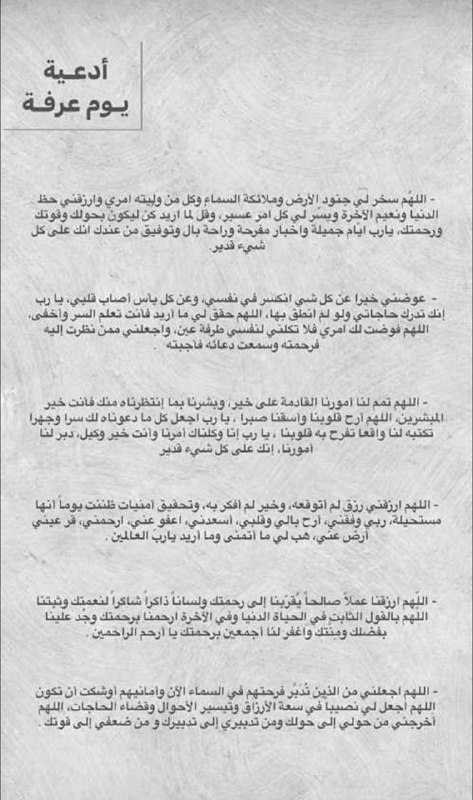 أدعـية
يـوم عرفـة
- اللهُم سخر لي جنود الأرض وملائكة السماء وكل من وليته امري وارزقني حظ
الدنيا ونعيم الآخرة ويسّر لي كل امر عسير، وقل لما اريد كن ليكون بحولك وقوتك
ورحمتك، يارب ايّام جميلة واخبار مفرحة وراحة بال وتوفيق من عندك انك على كل
شيء قدير.
- عوضني خيرا عن كل شي انكسر في نفسي، وعن كل يأس أصاب قلبي، يا رب
إنك تدرك حاجاتي ولو لم انطق بها، اللهم حقق لي ما أريد فأنت تعلم السر وأخفى،
اللهم فوضت لك امري فلا تكلني لنفسي طرفة عين، واجعلني ممن نظرت إليه
فرحمته وسمعت دعائه فأجبته .
- اللهم تمم لنا أمورنا القادمة على خير، وبشرنا بما إنتظرناه منك فأنت خير
المبشرين، اللهم أرح قلوبنا وأسقنا صبرا ، يا رب اجعل كل ما دعوناه لك سرا وجهرا
تكتبه لنا واقعا تفرح به قلوبنا ، يا رب إنا وكلناك أمرنا وأنت خير وكيل، دبر لنا
أمورنا، إنك على كل شيء قدير
- اللهم ارزقني رزق لم أتوقعه، وخير لم أفكر به، وتحقيق أمنيات ظننت يوماً أنها
مستحيلة، ربي وفقني، أرح بالي وقلبي، أسعدني، اعفو عني، ارحمني، قر عيني
أرضَ عني، هب لي ما أتمنى وما أريد يارب العالمين .
- اللّهم ارزقنا عملاً صالحاً يُقرّبنا إلى رحمتك ولساناً ذاكراً شاكراً لنعمتك وثبتنا
اللهم بالقول الثابت في الحياة الدنيا وفي الآخرة ارحمنا برحمتك وجُد علينا
بفضلك ومنّتك وأغفر لنا أجمعين برحمتك يا أرحم الراحمين .
- اللهم اجعلني من الذين تُدَبَّر فرحتهم في السماء الآن وأمانيهم أوشكت أن تكون
اللهم اجعل لي نصيباً في سعة الأرزاق وتيسير الأحوال وقضاء الحاجات، اللهم
أخرجني من حولي إلى حولك ومن تدبيري إلى تدبيرك و من ضعفي إلى قوتك .